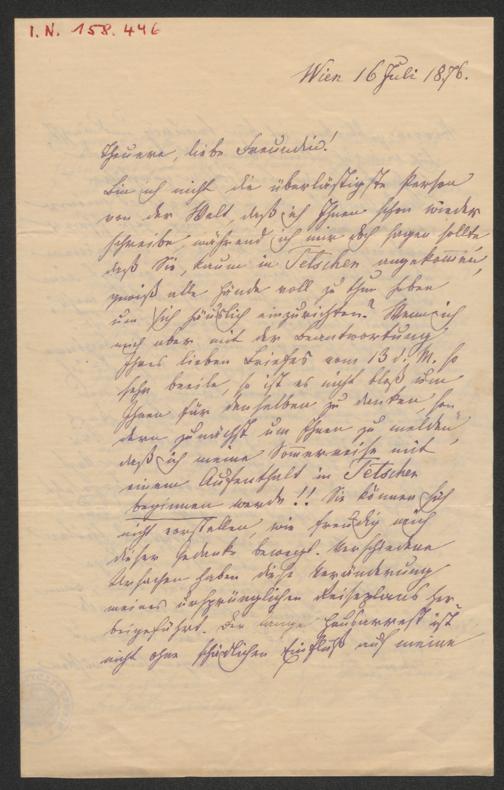 I. N. 158.446
Wien 16 Juli 1876.
Theuere, liebe Freundin!
Bin ich nicht die überlästigste Person
von der Welt, daß ich Ihnen schon wieder
schreibe, während ich mir doch sagen sollte
daß Sie, kaum in Tetschen angekommen,
gewiß alle Hände voll zu thun haben
um sich häuslich einzurichten? Wenn ich
mich aber mit der Beantwortung
Ihres lieben Briefes vom 13 d. M. so
sehr beeile, so ist es nicht bloß um
Ihnen für denselben zu danken, son
dern zunächst um Ihnen zu melden,
daß ich meine Sommerreise mit
einem Aufenthalt in Tetschen
beginnen werde!! Sie können sich
nicht vorstellen, wie freudig mich
dieser Gedanke bewegt. Verschiedene
Ursachen haben diese Veränderung
meines ursprünglichen Reiseplans her
beigeführt. Der lange Hausarrest ist
nicht ohne schädlichen Einfluß auf meine